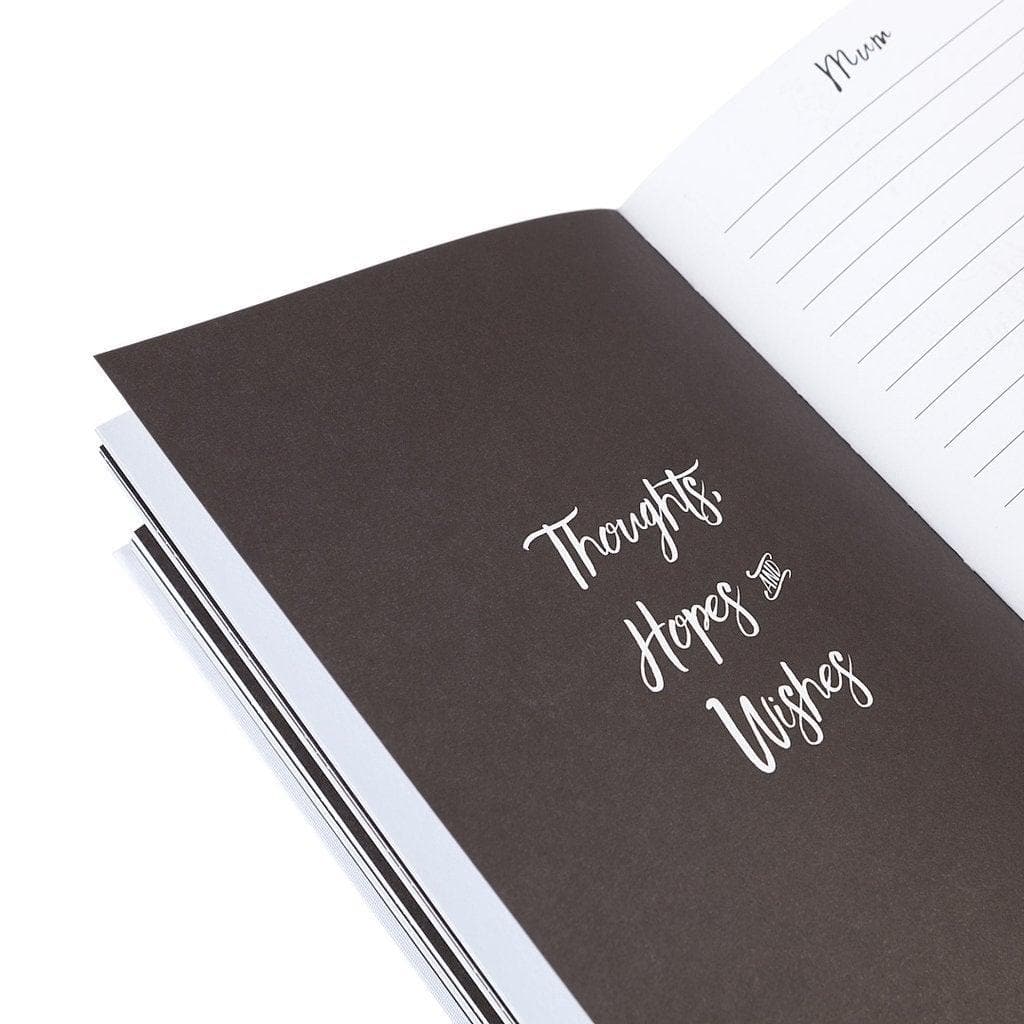 Thoughts,
Hopes AND
Wishes
Mum